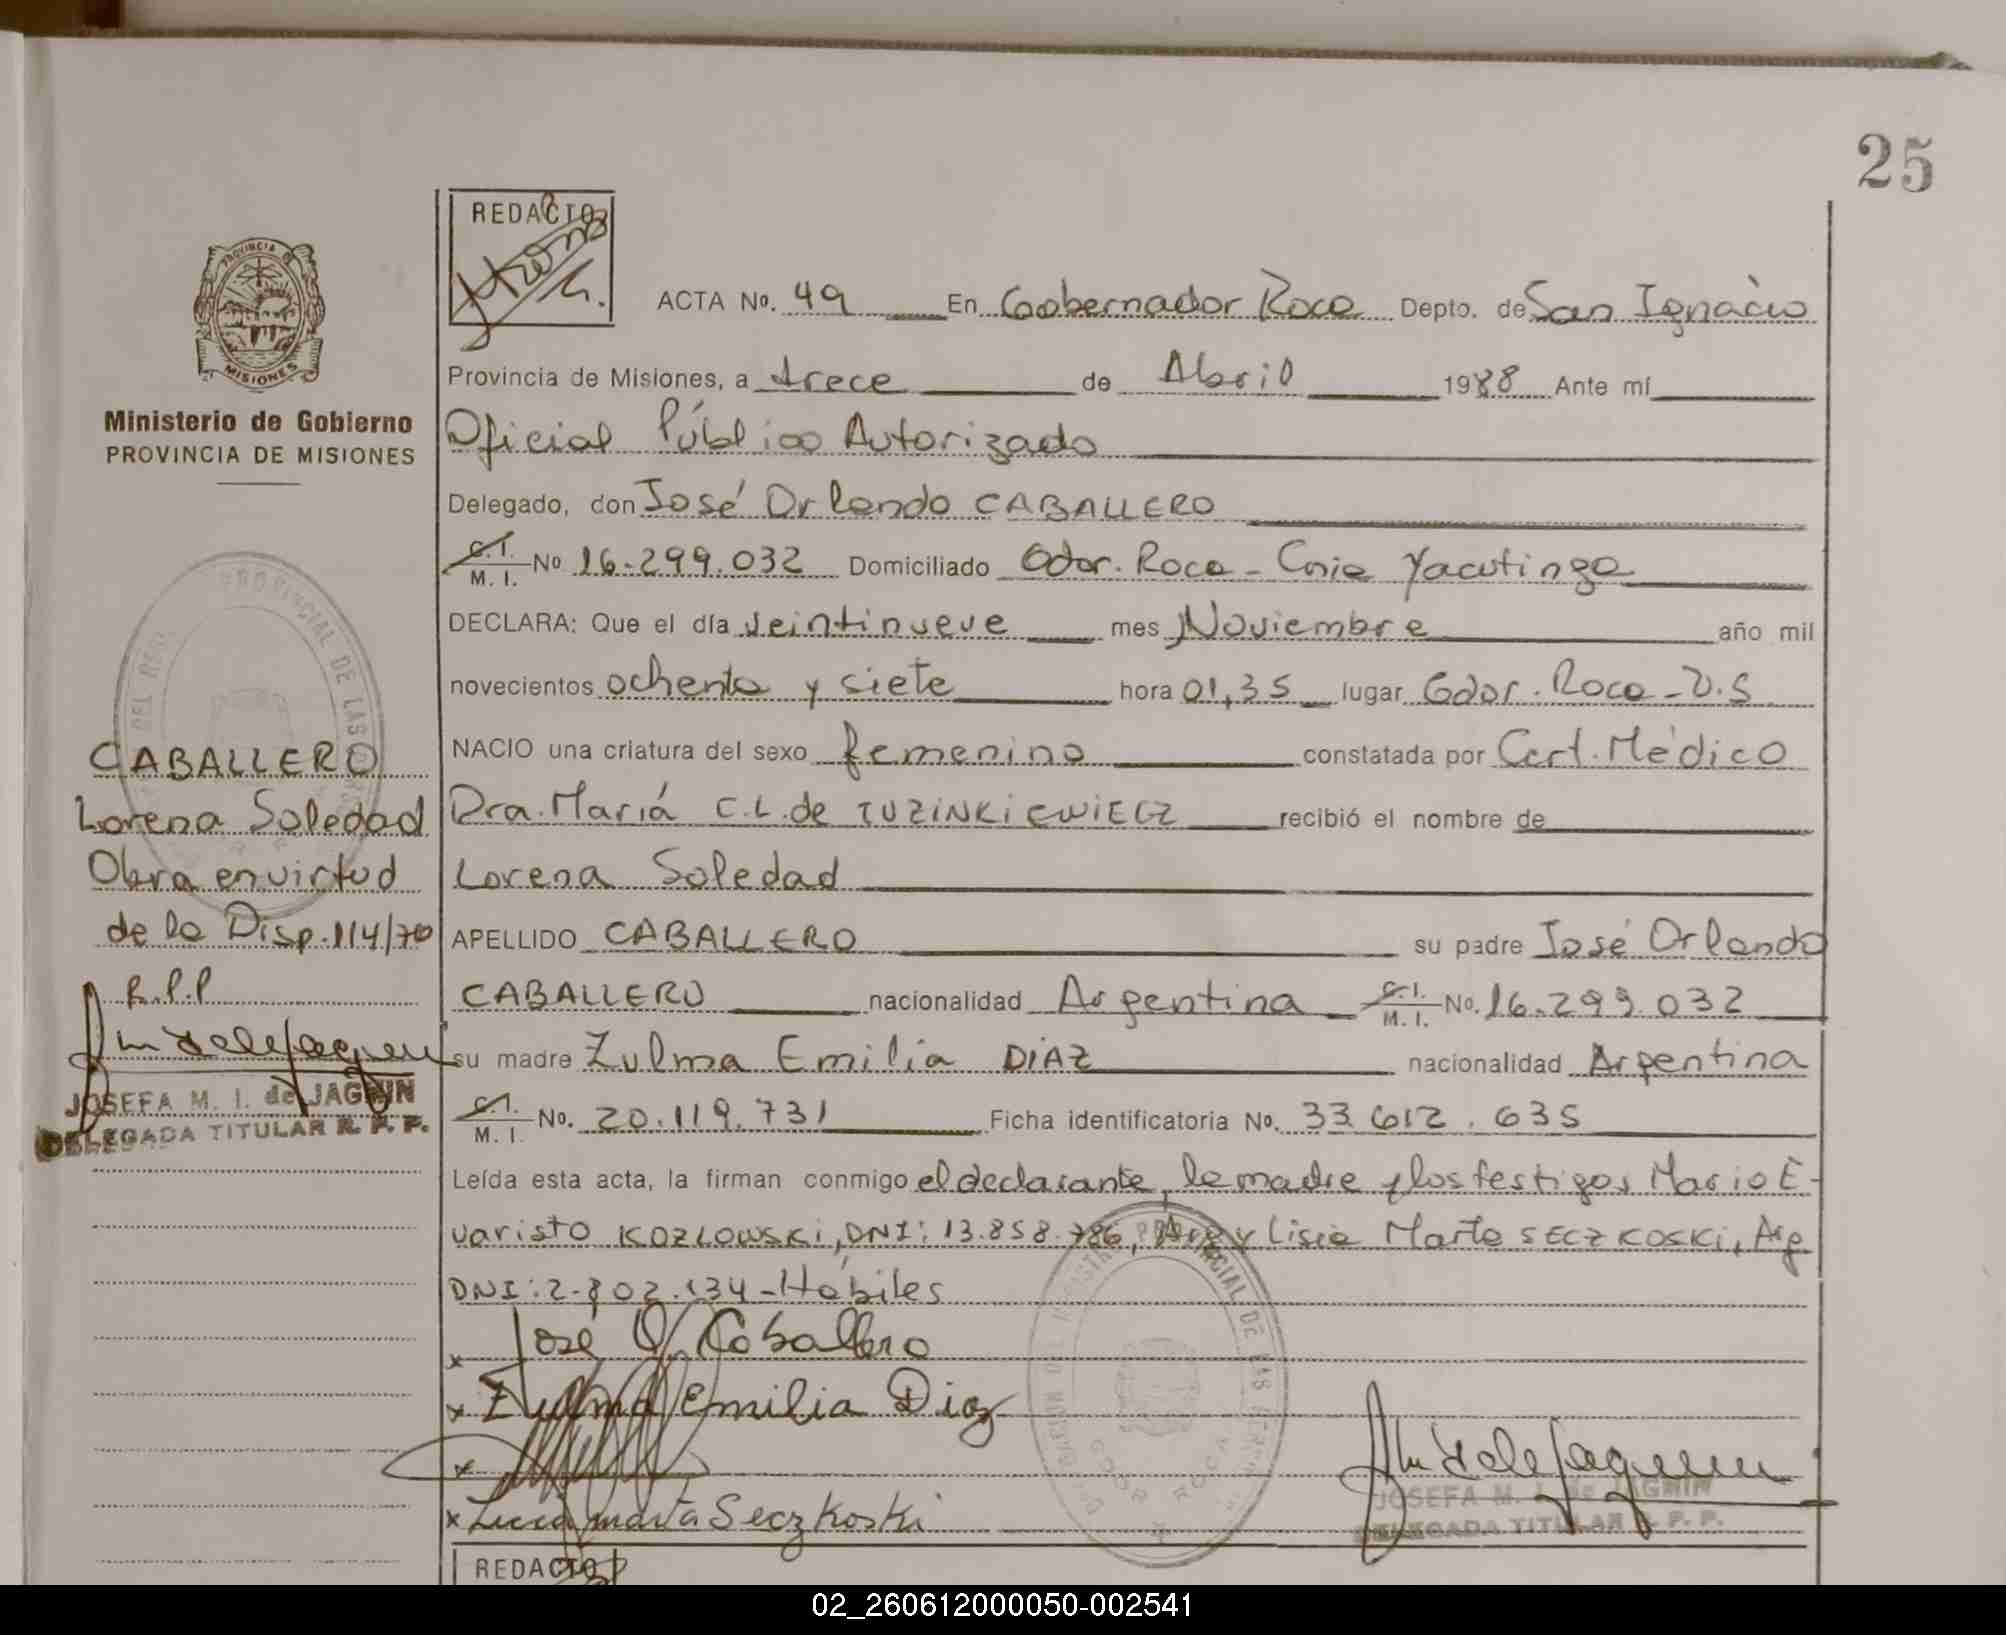 25
REDACTO
PROVINCIA
MISIONES
Ministerio de Gobierno
PROVINCIA DE MISIONES
ACTA No. 49 En Gobernador Roca Depto. de San Ignacio
Provincia de Misiones, a trece de Abril 1988 Ante mí
Oficial Público Autorizado
Delegado, don José Orlando CABALLERO
C.I.
M. I. No 16.299.032 Domiciliado Gdor. Roca - Cnia Yacutinga
DECLARA: Que el día veintinueve mes Noviembre año mil
novecientos ochenta y siete hora 01,35 lugar Gdor. Roca - U.S
NACIO una criatura del sexo femenino constatada por Cert. Médico
Dra. Mariá C.L. de TUZINKIEWIECZ recibió el nombre de
Lorena Soledad
APELLIDO CABALLERO su padre José Orlando
CABALLERO nacionalidad Argentina C.I.
M. I. No. 16.299.032
su madre Zulma Emilia DIAZ nacionalidad Argentina
C.I.
M. I. No. 20.119.731 Ficha identificatoria No. 33.612.635
Leída esta acta, la firman conmigo el declarante, la madre y los testigos Mario E-
varisto KOZLOWSKI, DNI: 13.858.786, Arg y Lisia Marta SECZKOSKI, Arg
DNI: 2.802.134 - Hábiles
x José O. Caballero
x Zulma Emilia Diaz
x
x Lucia marta Seczkoski
JOSEFA M. I. de JAGNIN
DELEGADA TITULAR R. P. P.
CABALLERO
Lorena Soledad
Obra en virtud
de la Disp. 114/70
R.P.P
JOSEFA M. I. de JAGNIN
DELEGADA TITULAR R. P. P.
GDOR ROCA
REDACTO
02_260612000050-002541